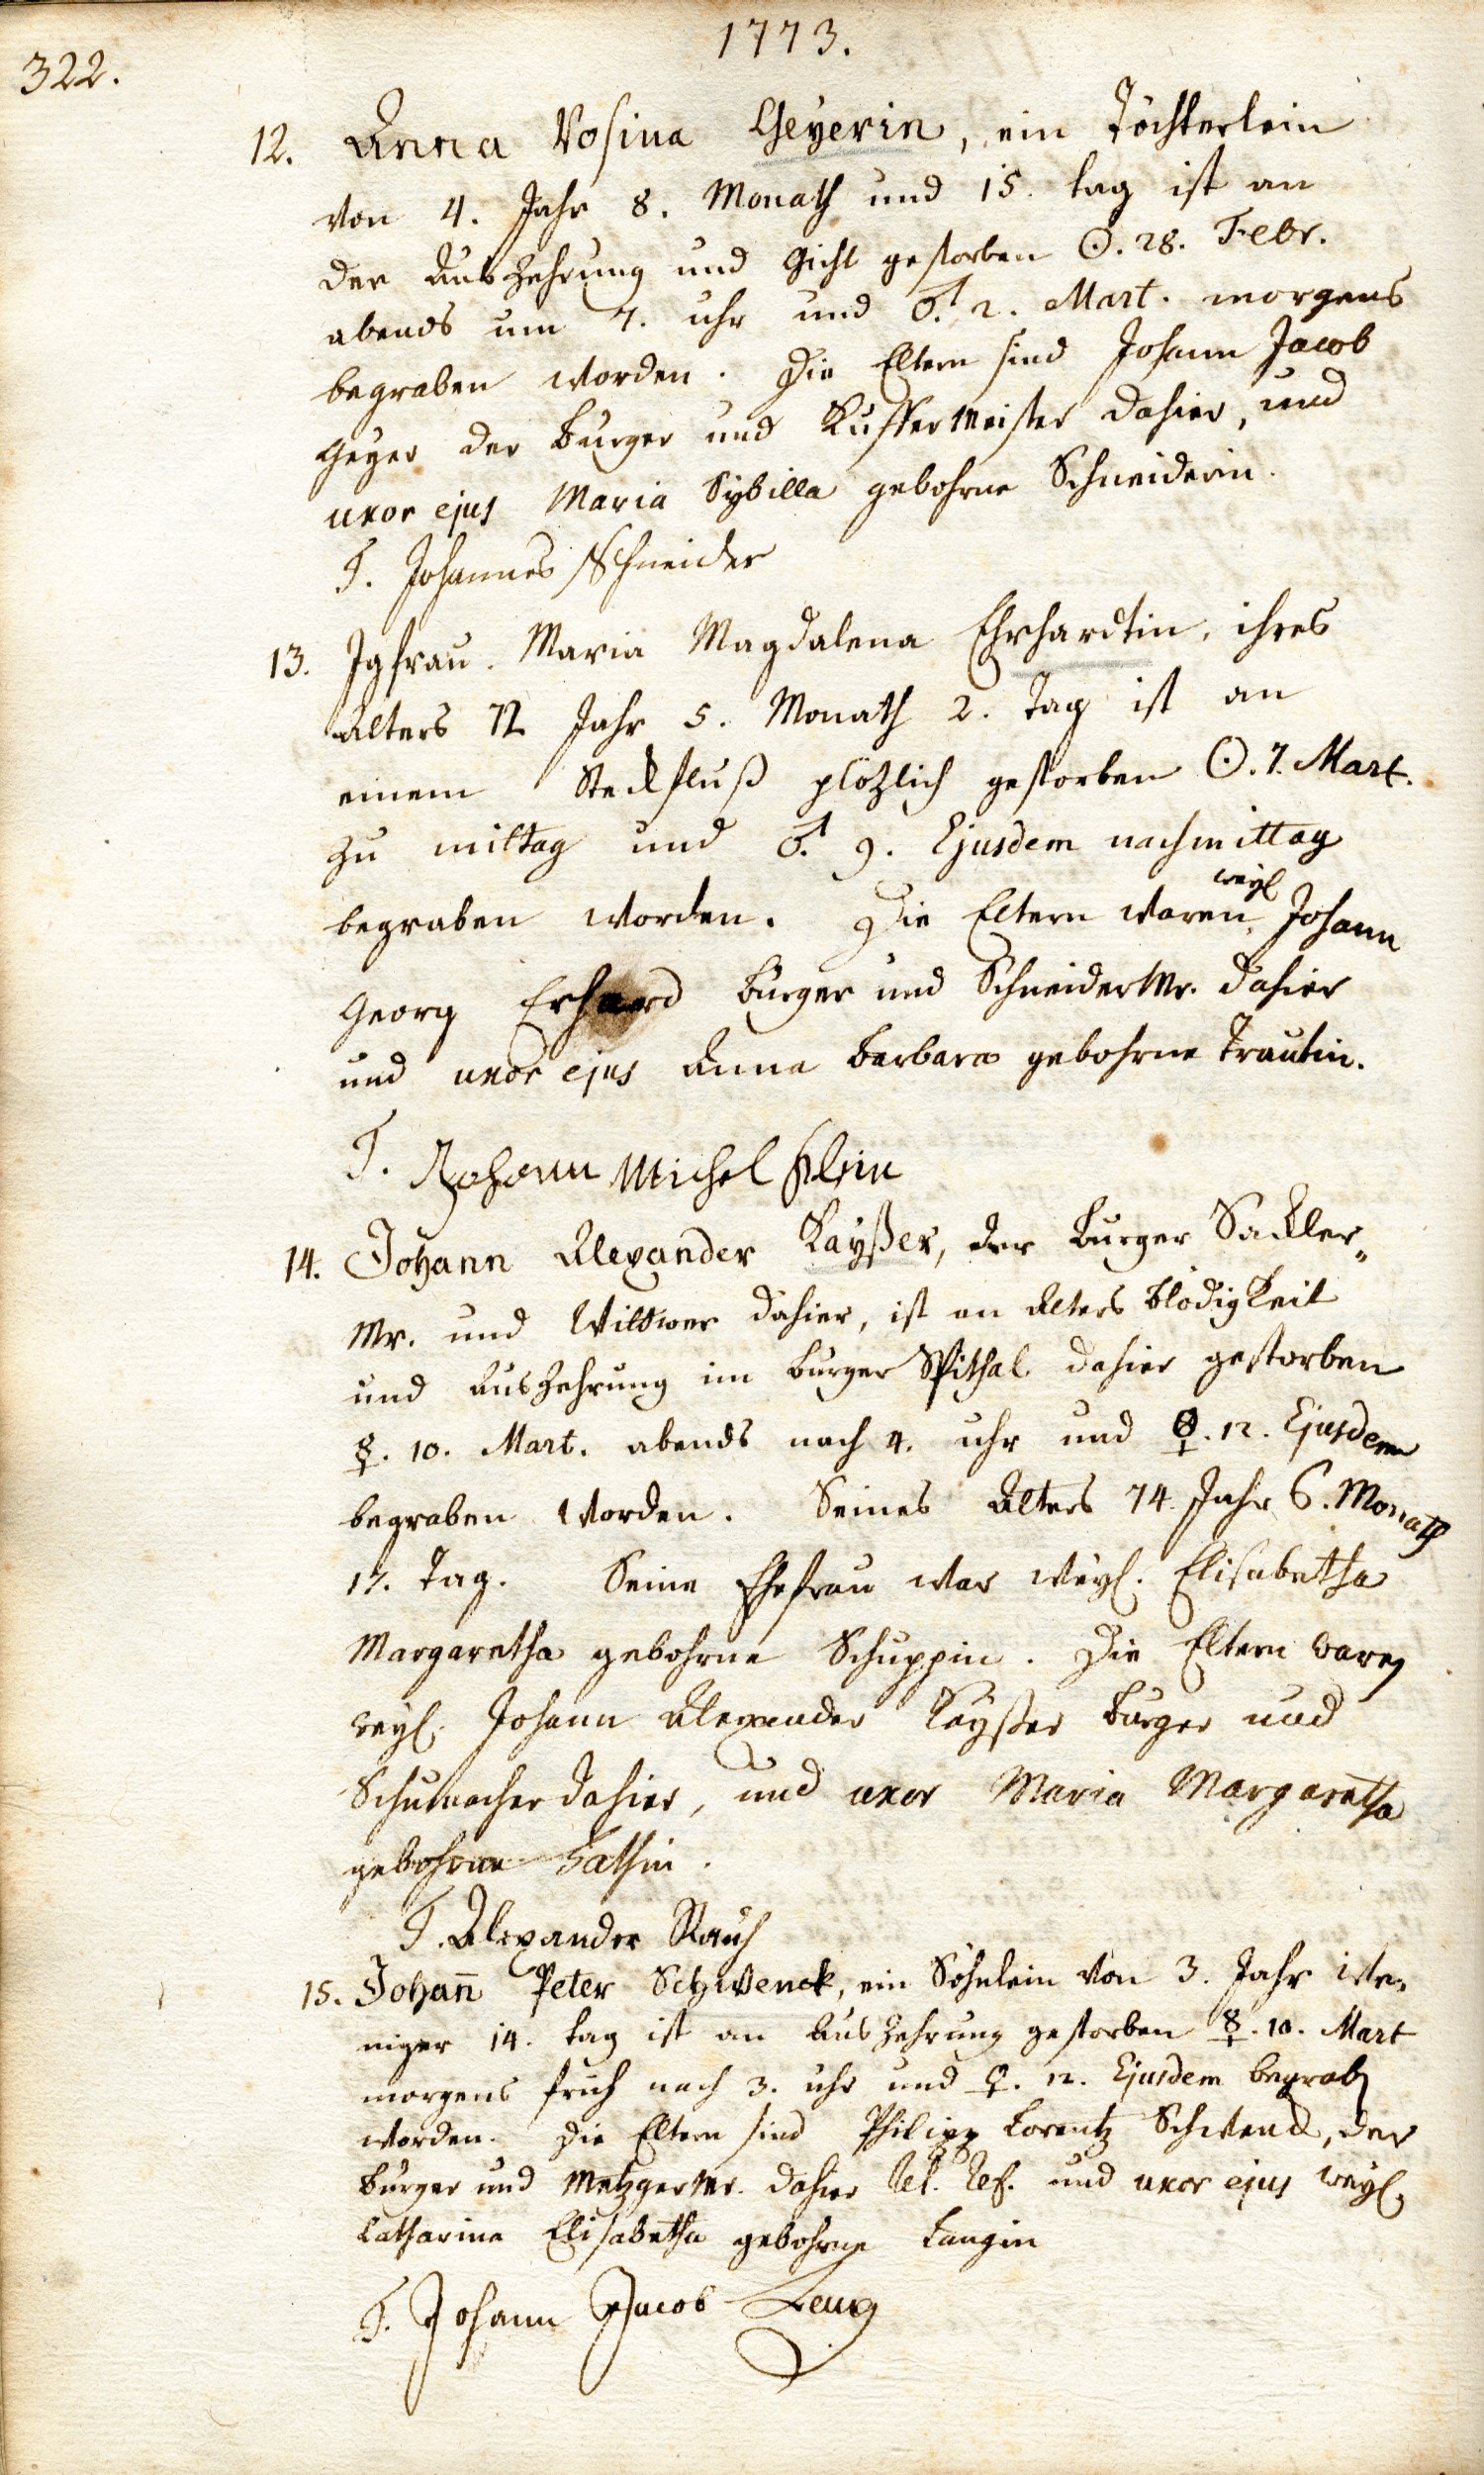 1773.
322.
12. Anna Rosina Geyerin, ein Töchterlein
von 4. Jahr 8. Monath und 15. tag ist an
der Auszehrung und Gicht gestorben ☉. 28. Febr.
abends um 7. uhr und ♂. 2. Mart. morgens
begraben worden. Die Eltern sind Johann Jacob
Geyer der Burger und Kuffermeister dahier, und
uxor ejus Maria Sybilla gebohrne Schneiderin.
T. Johannes Schneider
13. Jgfrau. Maria Magdalena Ehrhardtin, ihres
Alters 72 Jahr 5. Monath 2. Tag ist an
einem Steckfluß plözlich gestorben ☉. 7. Mart.
zu mittag und ♂. 9. Ejusdem nachmittag
begraben worden. Die Eltern waren weyl. Johann
Georg Erhard Burger und Schneider Mr. dahier
und uxor ejus Anna Barbara gebohrne Trautin.
T. Johann Michel Klein
14. Johann Alexander Kayßer, der Burger Sackler„
Mr. und Wittwer dahier, ist an Alters Blödigkeit
und Auszehrung im Burger Spithal dahier gestorben
☿. 10. Mart. abends nach 4. uhr und ♀. 12. Ejusdem
begraben worden. Seines Alters 74. Jahr 6. Monath
17. Tag. Seine Ehefrau war weyl. Elisabetha
Margaretha gebohrne Schuppin. Die Eltern waren
weyl. Johann Alexander Kayßer Burger und
Schumacher dahier, und uxor Maria Margaretha
gebohrne
T. Alexander Rauch
15. Johan̄ Peter Schwenck, ein Söhnlein von 3. Jahr we„
niger 14. tag ist an Auszehrung gestorben ☿. 10. Mart
morgens früh nach 3. uhr und ♀. 12. Ejusdem begraben
worden. Die Eltern sind Philipp Lorentz Schwenck, der
Burger und Metzger Mr. dahier Rel. Ref. und uxor ejus weyl.
Catharina Elisabetha gebohrne Langin
T. Johann Jacob Lang